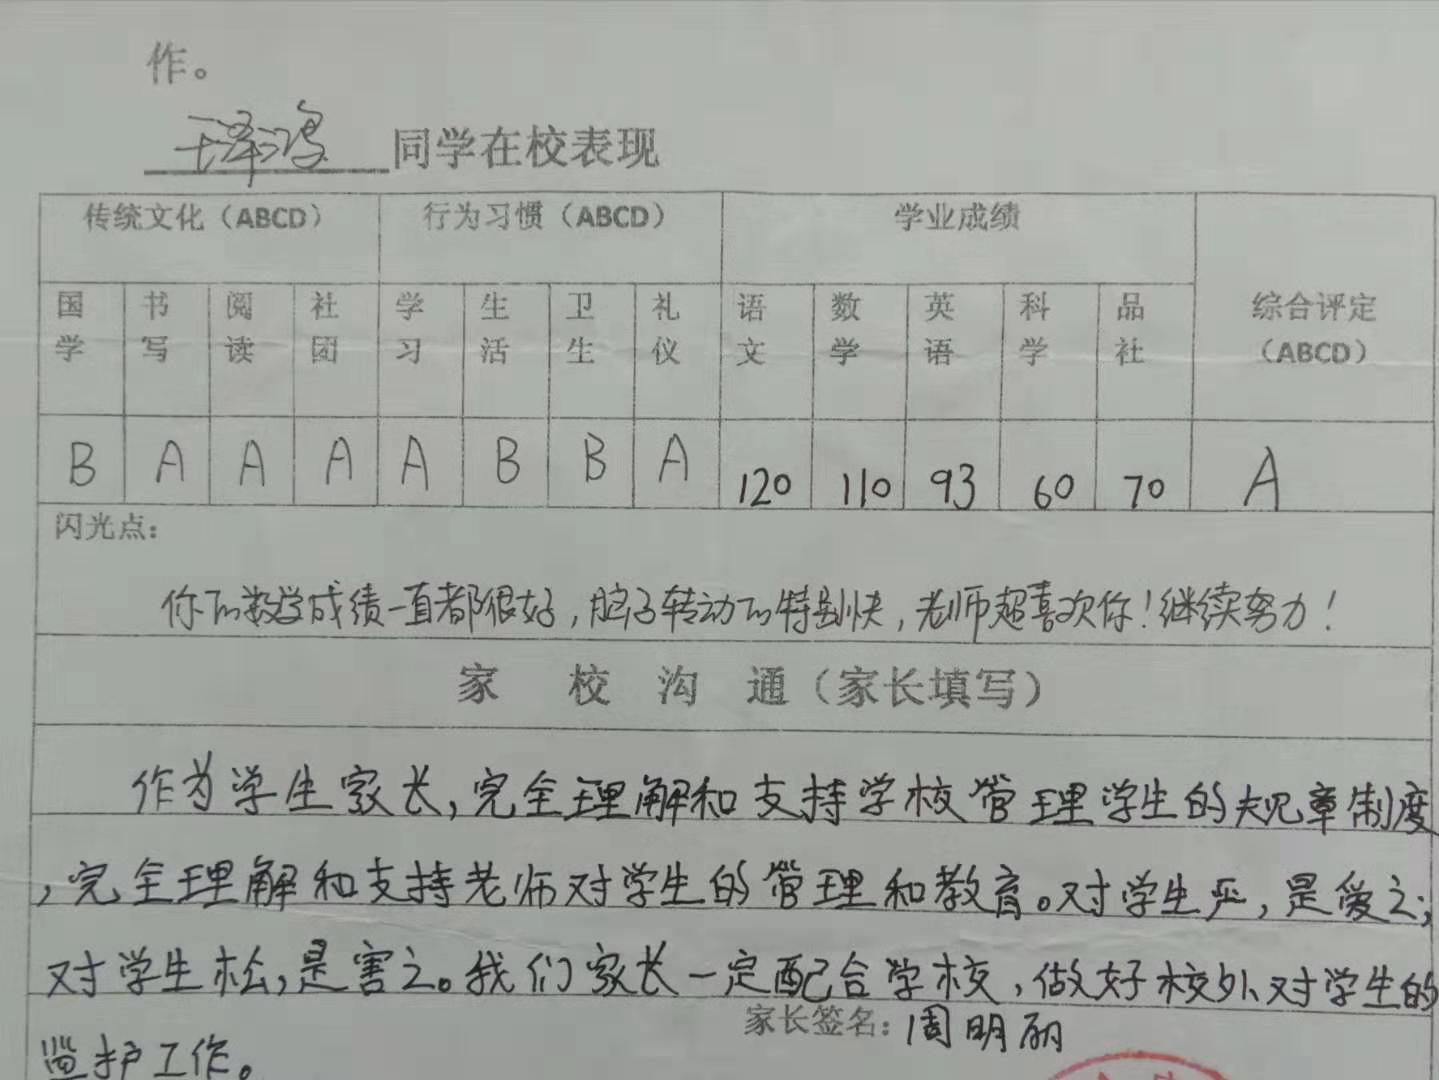 作。
王泽鸿 同学在校表现
传统文化（ABCD） 行为习惯（ABCD） 学业成绩 综合评定（ABCD）
国学 书写 阅读 社团 学习 生活 卫生 礼仪 语文 数学 英语 科学 品社
B A A A A B B A 120 110 93 60 70 A
闪光点：
你的数学成绩一直都很好，脑子转动的特别快，老师超喜欢你！继续努力！
家 校 沟 通（家长填写）
作为学生家长，完全理解和支持学校管理学生的规章制度
，完全理解和支持老师对学生的管理和教育。对学生严，是爱之；
对学生松，是害之。我们家长一定配合学校，做好校外对学生的
家长签名：周明丽
监护工作。